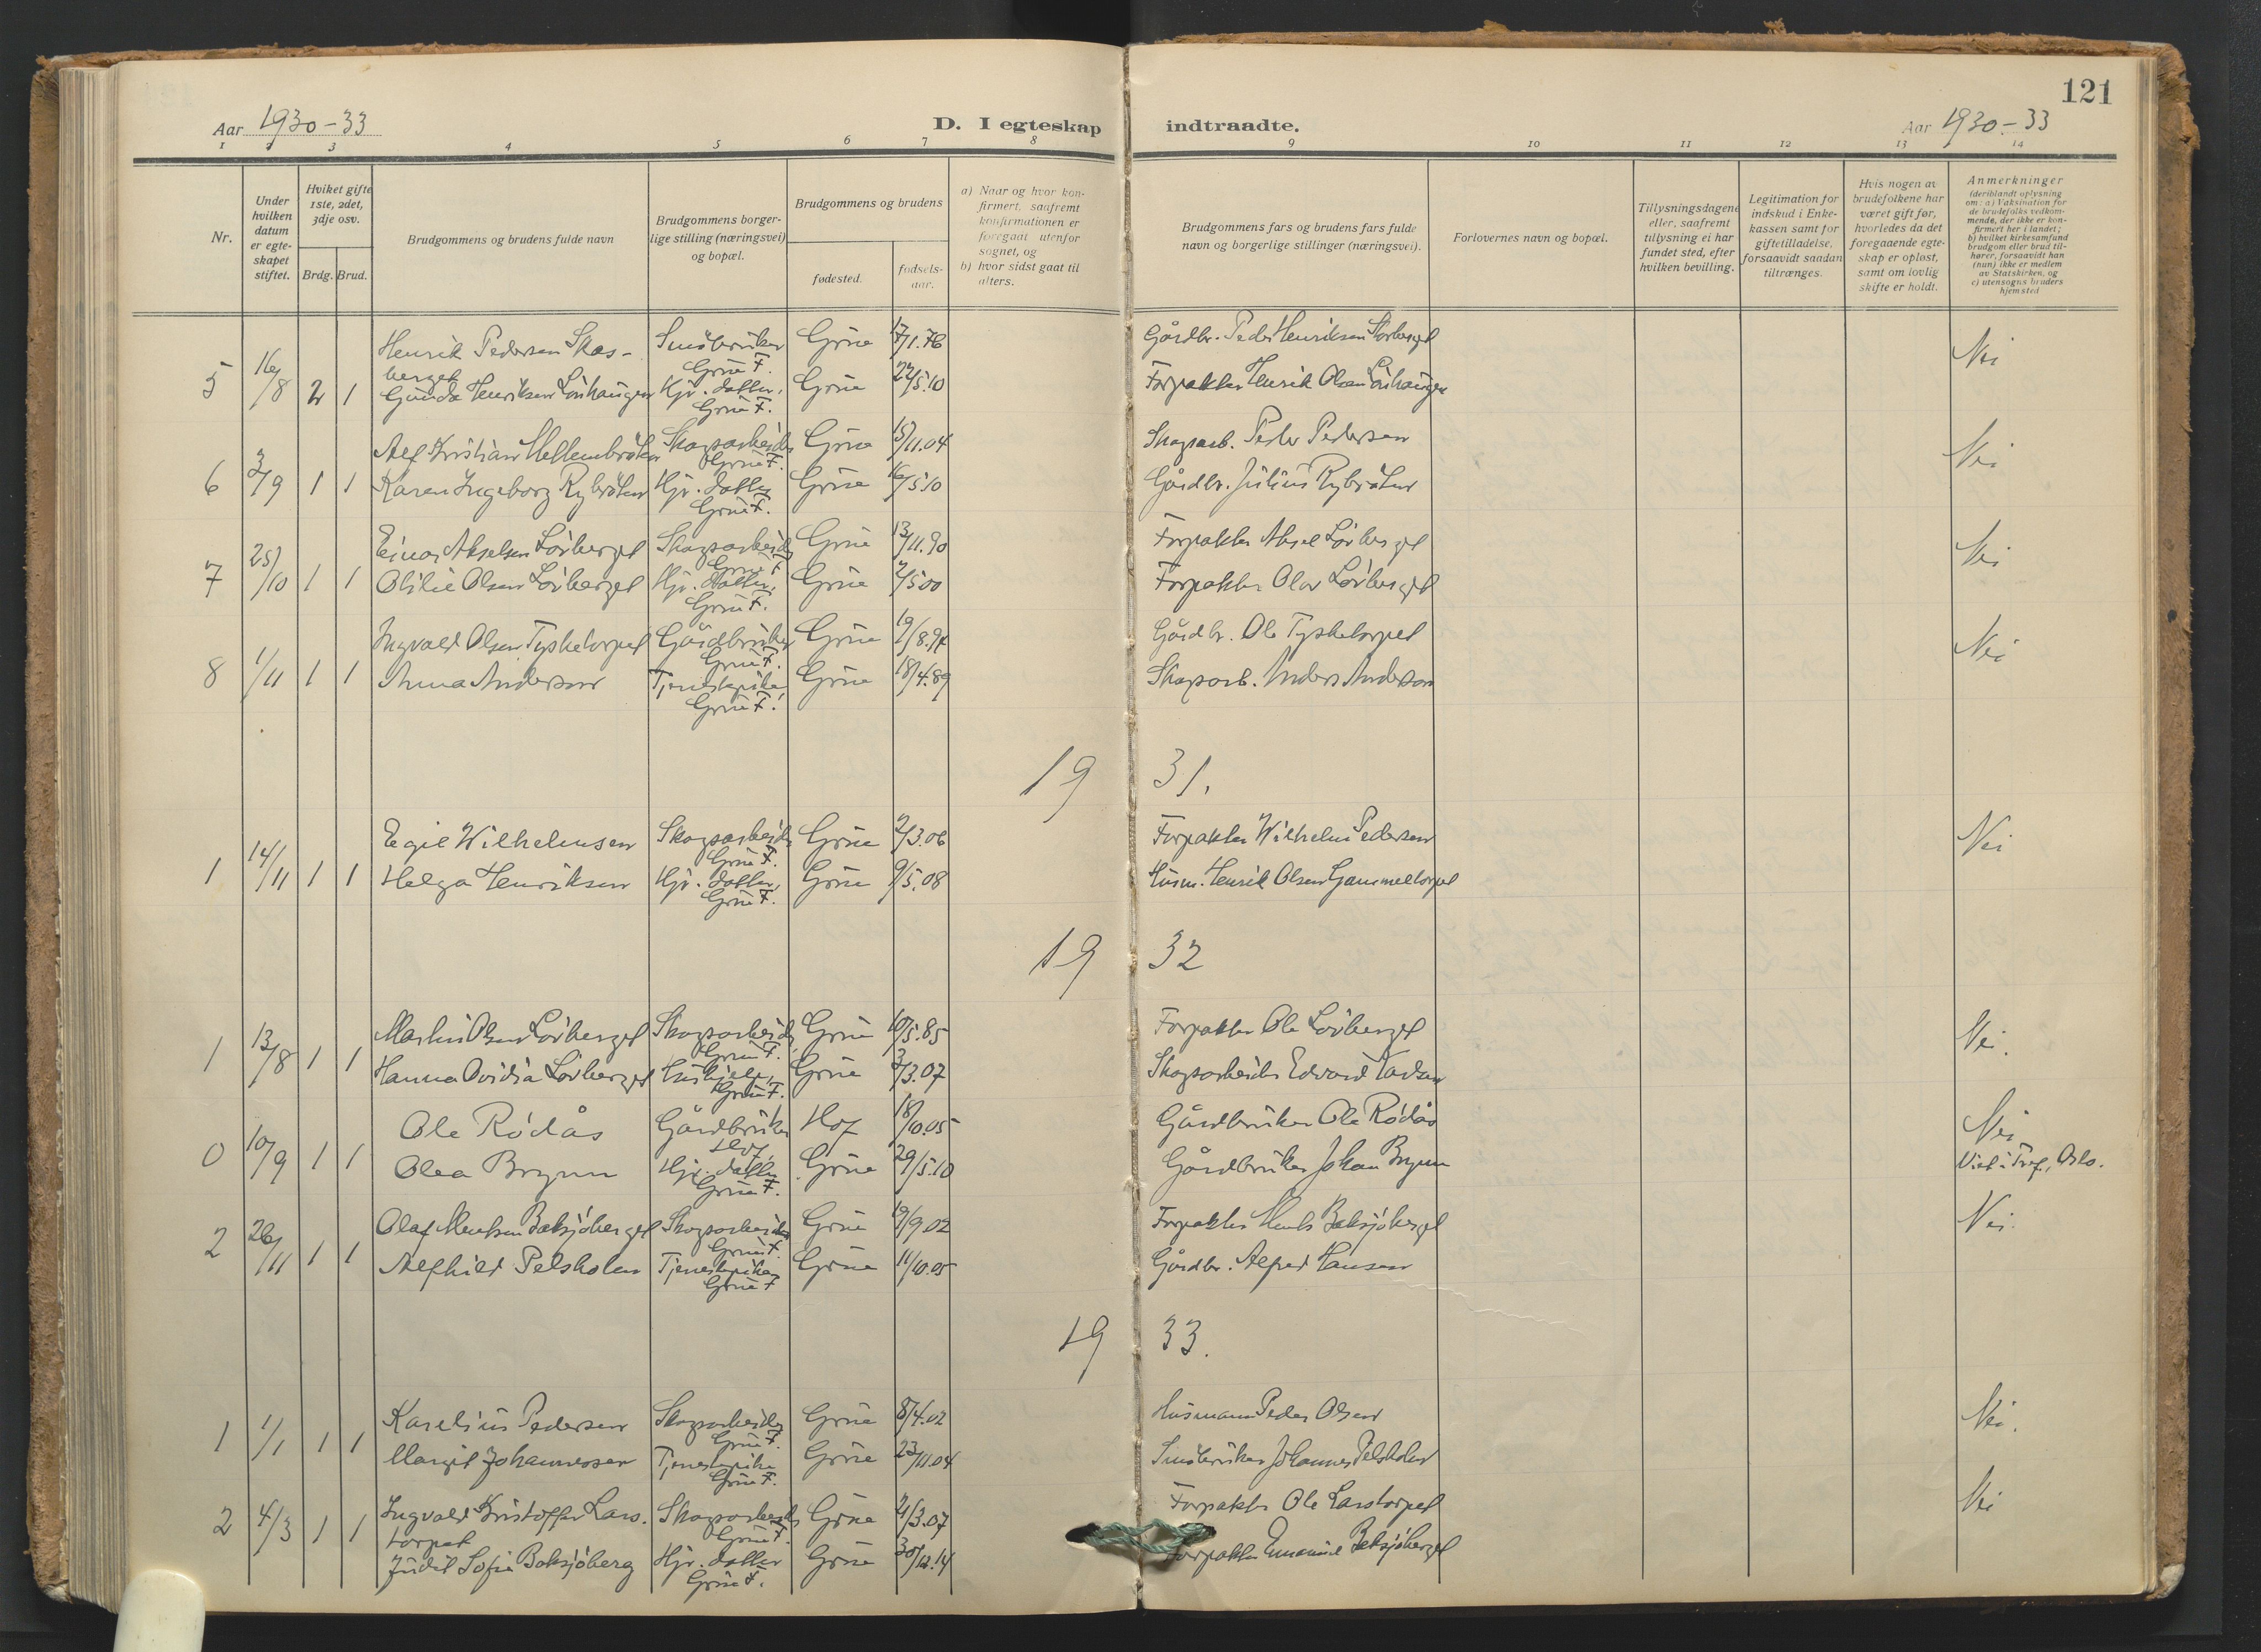 121
Aar 1930-33
D. I egteskap indtraadte.
Aar 1930-33
1 2 3 4 5 6 7 8 9 10 11 12 13 14
Nr.
Under hvilken datum er egteskapet stiftet.
Hviket gifte 1ste, 2det, 3dje osv.
Brdg. Brud.
Brudgommens og brudens fulde navn
Brudgommens borgerlige stilling (næringsvei) og bopæl.
Brudgommens og brudens
fødested.
fødselsaar.
a) Naar og hvor konfirmert, saafremt konfirmationen er foregaat utenfor sognet, og
b) hvor sidst gaat til alters.
Brudgommens fars og brudens fars fulde navn og borgerlige stillinger (næringsvei).
Forlovernes navn og bopæl.
Tillysningsdagene eller, saafremt tillysning ei har fundet sted, efter hvilken bevilling.
Legitimation for indskud i Enkekassen samt for giftetilladelse, forsaavidt saadan tiltrænges.
Hvis nogen av brudefolkene har været gift før, hvorledes da det foregaaende egteskap er opløst, samt om lovlig skifte er holdt.
Anmerkninger
(deriblandt oplysning om: a) Vaksination for de brudefolks vedkommende, der ikke er konfirmert her i landet;
b) hvilket kirkesamfund brudgom eller brud tilhører, forsaavidt han (hun) ikke er medlem av Statskirken, og
c) utensogns bruders hjemsted
Henrik Pedersen Skasberget Småbruker Grue F. Grue 17/1.76 Gårdbr. Peder Henriksen Skasberget Nei
5 16/8 2 1 Gunda Henriksen Lövhaugen Hjv. datter, Grue F. Grue 22/5.10 Forpakter Henrik Olsen Lövhaugen
Alf Kristian Mellembråten Skogsarbeider Grue F. Grue 15/11.04 Skogsarb. Peder Pedersen Nei
6 3/9 1 1 Karen Ingeborg Rybråten Hjv. datter Grue F. Grue 16/5.10 Gårdbr. Julius Rybråten
Einar Akselsen Lövberget Skogsarbeider Grue F Grue 13/11.90 Forpakter Aksel Lövberget Nei
7 25/10 1 1 Otilie Olsen Lövberget Hjv. datter, Grue F. Grue 2/5.00 Forpakter Olav Lövberget
Ingvald Olsen Tysketorpet Gårdbruker Grue F. Grue 19/8.94 Gårdbr. Ole Tysketorpet Nei
8 1/11 1 1 Anna Andersen Tjenestepike Grue F. Grue 18/4.89 Skogsarb. Anders Andersen
19 31.
Egil Wilhelmsen Skogsarbeider Grue F. Grue 2/3.06 Forpakter Wilhelm Pedersen Nei
1 14/11 1 1 Helga Henriksen Hjv. datter, Grue F. Grue 9/5.08 Husm. Henrik Olsen Gammeltorpet
19 32
Martin Olsen Lövberget Skogsarbeider, Grue F. Grue 10/5.85 Forpakter Ole Lövberget Nei.
1 13/8 1 1 Hanna Ovidia Lövberget Hushjelp, Grue F. Grue 3/3.07 Skogsarbeider Edvard
Ole Rödås Gårdbruker Hof Hof 18/10.05 Gårdbruker Ole Rödås Nei
0 10/9 1 1 Olea Brynn Hjv. datter Grue F. Grue 29/5.10 Gårdbruker Johan Brynn Viet i Tref., Oslo.
Olaf Mentsen Baksjöberget Skogsarbeider Grue F. Grue 19/9.02 Forpakter Ments Baksjöberget Nei.
2 26/11 1 1 Alfhild Pelsholen Tjenestepike Grue F Grue 11/10.05 Gårdbr. Alfred Hansen
19 33.
Karelius Pedersen Skogsarbeider Grue F. Grue 8/4.02 Husmann Peder Olsen Nei.
1 1/1 1 1 Margit Johannessen Tjenestepike Grue F. Grue 23/11.04 Småbruker Johannes Pelsholen
Ingvald Kristoffer Larstorpet Skogsarbeider Grue F. Grue 21/3.07 Forpakter Ole Larstorpet Nei
2 4/3 1 1 Judit Sofie Baksjöberg Hjv. datter Grue F. Grue 30/12.14 Forpakter Emanuel Baksjöberget